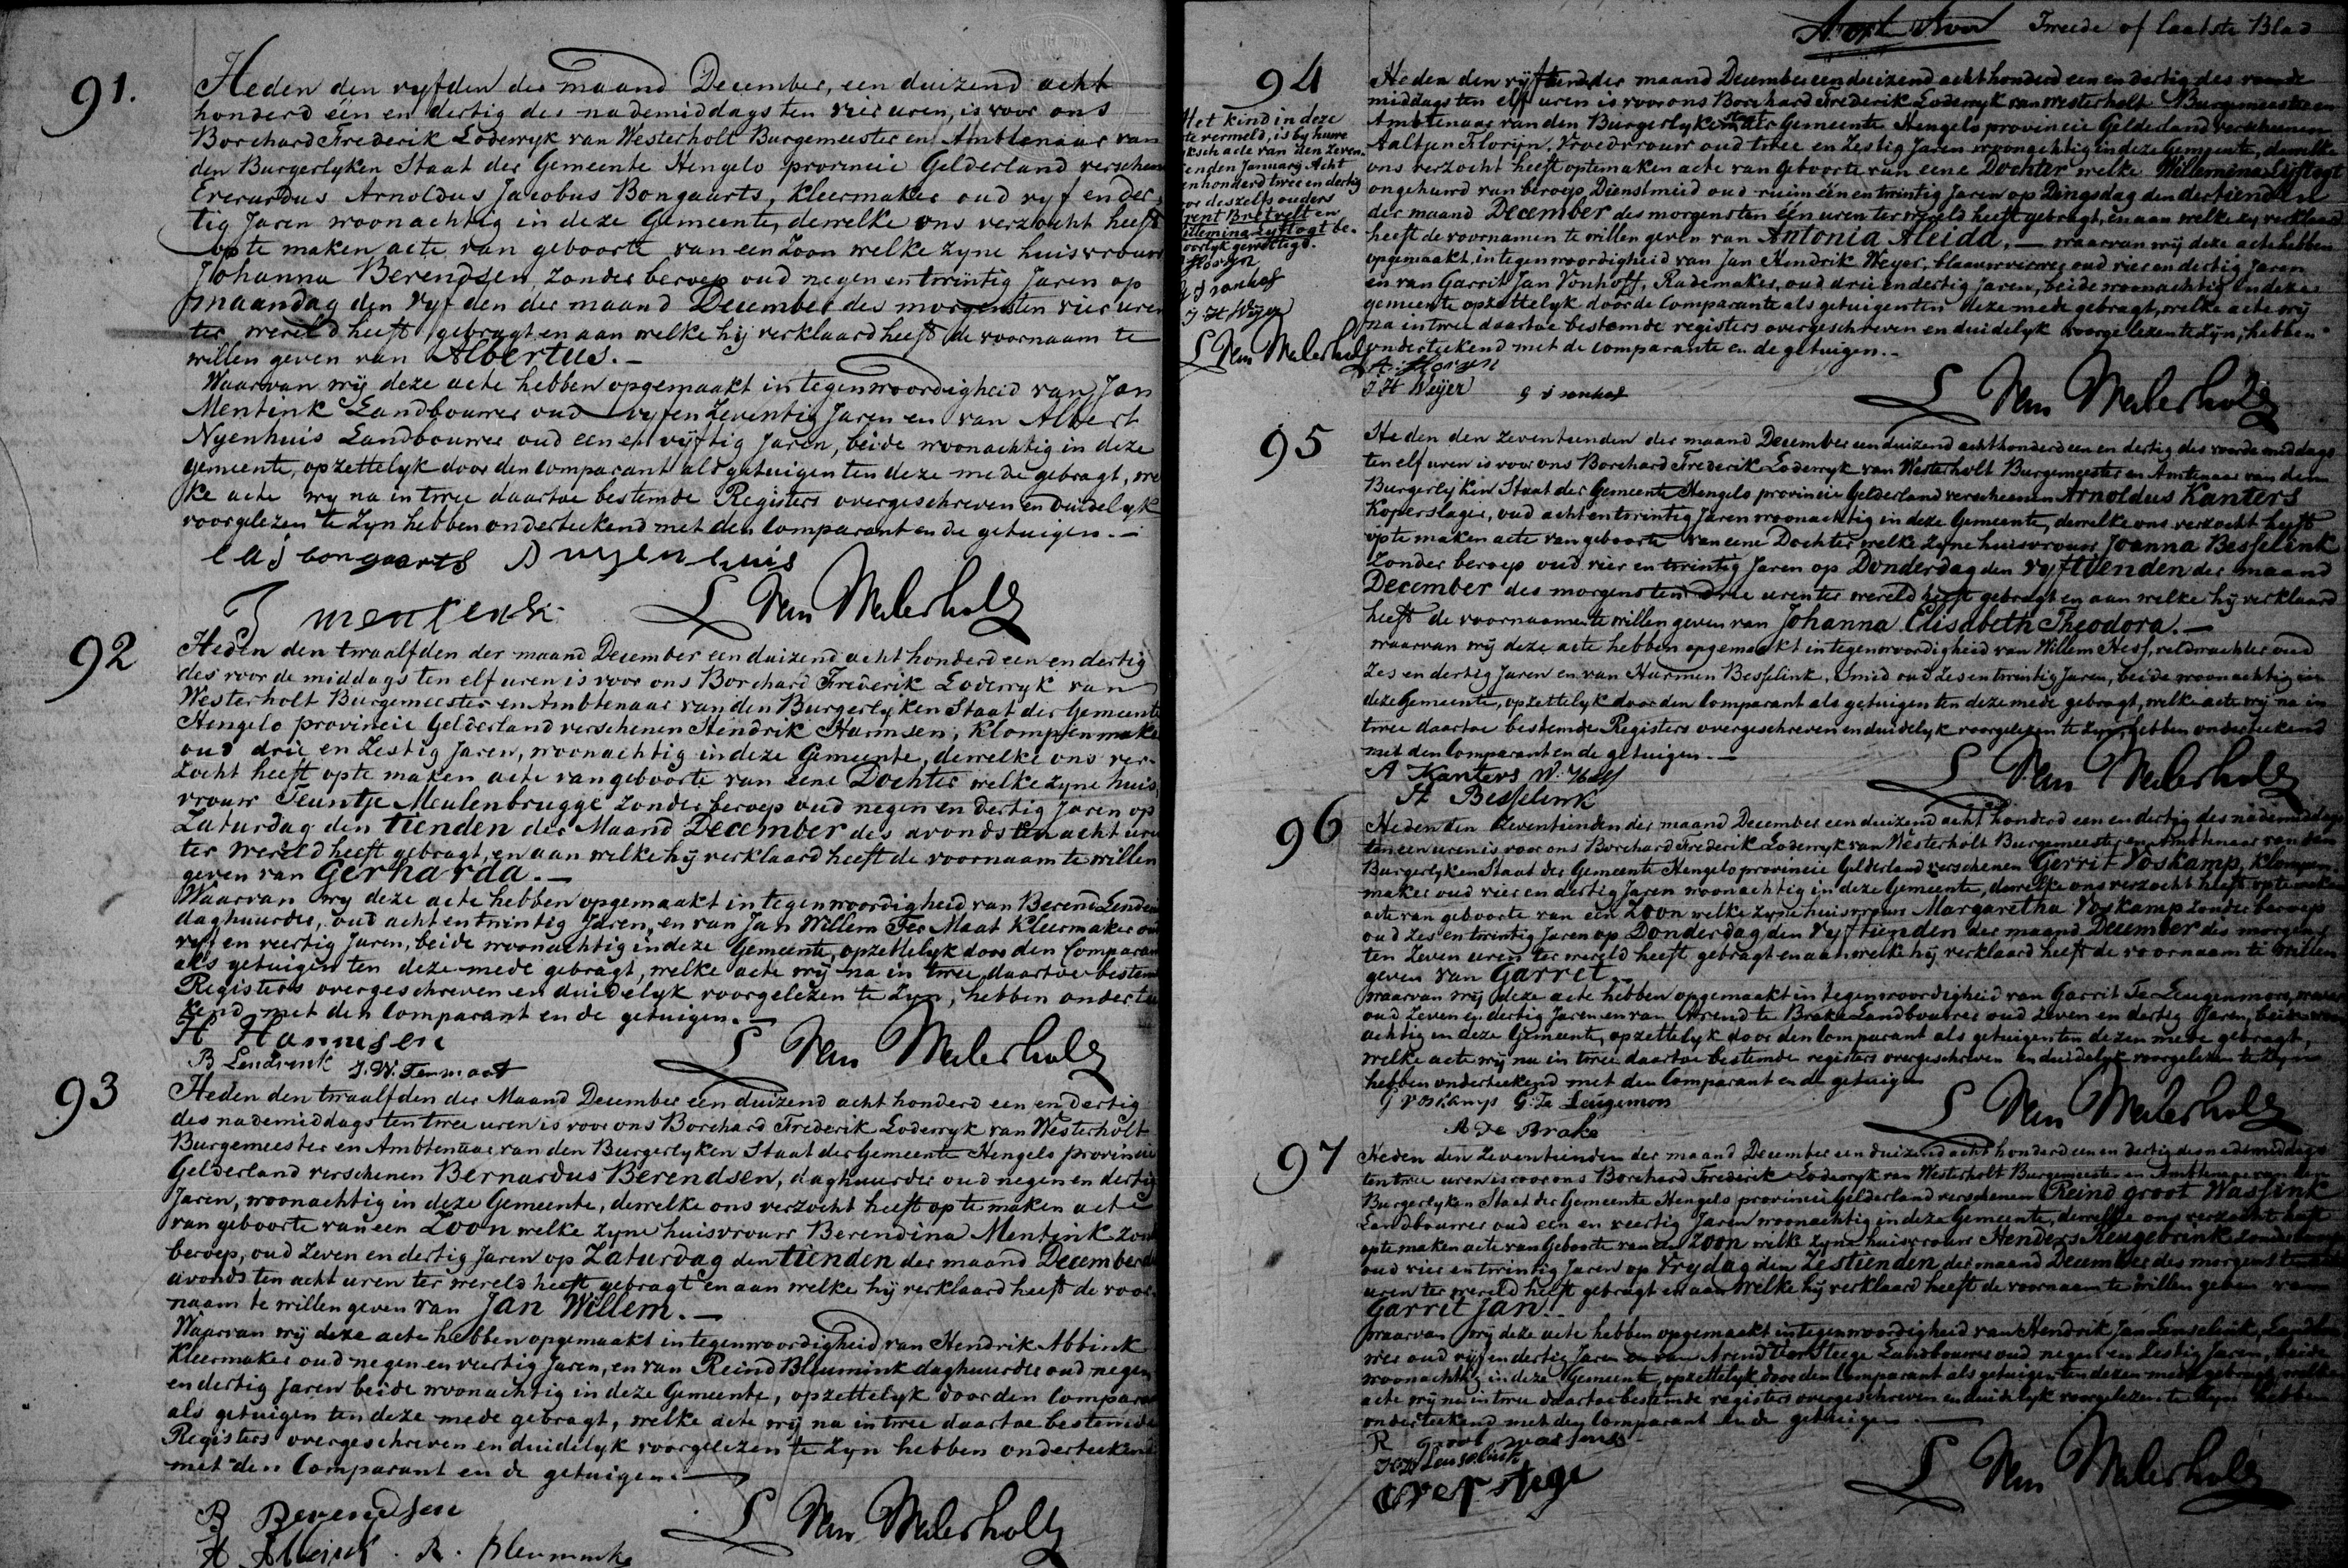 91.
Heden den vyfden der maand December, een duizend acht
honderd één en dertig des nademiddags ten vier uren, is voor ons
Borchard Frederik Lodewyk van Westerholt Burgemeester en Ambtenaar van
den Burgerlyken Staat der Gemeente Hengelo provincie Gelderland verschenen
Everardus Arnoldus Jacobus Bongaarts, Kleermaker oud vyf en der-
tig Jaren woonachtig in deze Gemeente, dewelke ons verzocht heeft
op te maken acte van geboorte van een Zoon welke zyne huisvrouw
Johanna Berendsen, zonder beroep oud negen en twintig Jaren op
maandag den vyfden der maand December des morgens ten vier uren
ter wereld heeft gebragt en aan welke hij verklaard heeft de voornaam te
willen geven van Albertus. —
Waarvan wij deze acte hebben opgemaakt in tegenwoordigheid van Jan
Mentink Landbouwer oud vyf en Zeventig Jaren en van Albert
Nyenhuis Landbouwer oud een en vijftig Jaren, beide woonachtig in deze
gemeente, opzettelyk door den Comparant als getuigen ten deze mede gebragt, wel
ke acte wy na in twee daartoe bestemde Registers overgeschreven en duidelyk
voorgelezen te zyn hebben onderteekend met den Comparant en de getuigen. —
E A J bongaarts A nyenhuis
J mentink L Van Westerholt
92
Heden den twaalfden der maand December een duizend acht honderd een en dertig
des voor de middags ten elf uren is voor ons Borchard Frederik Lodewyk van
Westerholt Burgemeester en Ambtenaar van den Burgerlyken Staat der Gemeente
Hengelo provincie Gelderland verschenen Hendrik Harmsen, Klompenmaker
oud drie en Zestig Jaren, woonachtig in deze Gemeente, dewelke ons ver-
zocht heeft op te maken acte van geboorte van eene Dochter welke zyne huis
vrouw Teuntje Meulenbrugge zonder beroep oud negen en dertig Jaren op
Zaturdag den tienden der Maand December des avonds ten acht uren
ter wereld heeft gebragt, en aan welke hij verklaard heeft de voornaam te willen
geven van Gerharda. —
Waarvan wy deze acte hebben opgemaakt in tegenwoordigheid van Berend
daghuurder, oud acht en twintig Jaren, en van Jan Willem Ter Maat Kleermaker oud
vyf en veertig Jaren, beide woonachtig in deze Gemeente, opzettelyk door den Comparant
als getuigen ten deze mede gebragt, welke acte wij na in twee daartoe bestemde
Registers overgeschreven en duidelyk voorgelezen te zyn, hebben onderteekend
met den Comparant en de getuigen. —
H Harmsen
B Lendrink J. W. Termaat L Van Westerholt
93
Heden den twaalfden der Maand December een duizend acht honderd een en dertig
des nademiddags ten twee uren is voor ons Borchard Frederik Lodewyk van Westerholt
Burgemeester en Ambtenaar van den Burgerlyken Staat der Gemeente Hengelo provincie
Gelderland verschenen Bernardus Berendsen, daghuurder oud negen en dertig
Jaren, woonachtig in deze Gemeente, dewelke ons verzocht heeft op te maken acte
van geboorte van een Zoon welke zyne huisvrouw Berendina Mentink zonder
beroep, oud Zeven en dertig Jaren op Zaturdag den tienden der maand December des
avonds ten acht uren ter wereld heeft gebragt en aan welke hij verklaard heeft de voor-
naam te willen geven van Jan Willem. —
Waarvan wij deze acte hebben opgemaakt in tegenwoordigheid van Hendrik Abbink
Kleermaker oud negen en veertig Jaren, en van Reind Bleumink daghuurder oud negen
en dertig Jaren beide woonachtig in deze Gemeente, opzettelyk door den Comparant
als getuigen ten deze mede gebragt, welke acte wij na in twee daartoe bestemde
Registers overgeschreven en duidelyk voorgelezen te zyn hebben onderteekend
met den Comparant en de getuigen. —
B Berendsen
H Abbink . R . bleumink L Van Westerholt
Tweede of laatste Blad
94
Heden den vijftienden der maand December een duizend acht honderd een en dertig des voorde
middags ten elf uren is voor ons Borchard Frederik Lodewyk van Westerholt Burgemeester en
Ambtenaar van den Burgerlyken Staat der Gemeente Hengelo provincie Gelderland verschenen
Aaltjen Florijn, Vroedvrouw oud twee en Zestig Jaren woonachtig in deze Gemeente, dewelke
ons verzocht heeft optemaken acte van geboorte van eene Dochter welke Willemina Lijftogt
ongehuwd van beroep Dienstmeid oud ruim één en twintig Jaren op Dingsdag den dertienden
der maand December des morgens ten één uren ter wereld heeft gebragt, en aan welke zy verklaard
heeft de voornamen te willen geven van Antonia Aleida, — waarvan wij deze acte hebben
opgemaakt, in tegenwoordigheid van Jan Hendrik Weyer, blaauwverwer oud vier en dertig Jaren
en van Garrit Jan Vonhoff, Rademaker, oud drie en dertig Jaren, beide woonachtig in deze
gemeente opzettelyk door de Comparante als getuigen ten deze mede gebragt, welke acte wij
na in twee daartoe bestemde registers overgeschreven en duidelyk voorgelezen te zyn, hebben
onderteekend met de comparante en de getuigen. —
A. Florijn
J H Weijer G J vonhof L Van Westerholt
Het kind in deze
acte vermeld, is by huwe
lyksch acte van den zeven
enden January Acht
en honderd twee en dertig
door deszelfs ouders
en
Willemina Lyftogt be-
hoorlyk gewettigd.
A Florijn
G J vonhof
J H Weijer
L Van Westerholt
95
Heden den zeventienden der maand December een duizend achthonderd een en dertig des voorde middags
ten elf uren is voor ons Borchard Frederik Lodewyk van Westerholt Burgemeester en Amtenaar van den
Burgerlyken Staat der Gemeente Hengelo provincie Gelderland verschenen Arnoldus Kanters
Koperslager, oud acht en twintig Jaren woonachtig in deze Gemeente, dewelke ons verzocht heeft
op te maken acte van geboorte van eene Dochter welke zyne huisvrouw Joanna Besselink
zonder beroep oud vier en twintig Jaren op Donderdag den vyftienden der maand
December des morgens ten drie uren ter wereld heeft gebragt en aan welke hij verklaard
heeft de voornaamen te willen geven van Johanna Elisabeth Theodora. —
waarvan wij deze acte hebben opgemaakt in tegenwoordigheid van Willem Hess, veldwachter oud
Zes en dertig Jaren en van Harmen Besselink, Smid oud Zes en twintig Jaren, beide woonachtig in
deze Gemeente, opzettelyk door den Comparant als getuigen ten deze mede gebragt, welke acte wij na in
twee daartoe bestemde Registers overgeschreven en duidelyk voorgelezen te zyn, hebben onderteekend
met den Comparant en de getuigen. —
A Kanters W. Hess
H Besselink L Van Westerholt
96
Heden den Zeventienden der maand December een duizend acht honderd een en dertig des nademiddags
ten een uren is voor ons Borchard Frederik Lodewyk van Westerholt Burgemeester en Ambtenaar van den
Burgerlyken Staat der Gemeente Hengelo provincie Gelderland verschenen Gerrit Voskamp, Klompen
maker oud vier en dertig Jaren woonachtig in deze Gemeente, dewelke ons verzocht heeft op te maken
acte van geboorte van een Zoon welke zyne huisvrouw Margaretha Voskamp zonder beroep
oud Zes en twintig Jaren op Donderdag den vyftienden der maand December des morgens
ten Zeven uren ter wereld heeft gebragt en aan welke hij verklaard heeft de voornaam te willen
geven van Garret. —
waarvan wij deze acte hebben opgemaakt in tegenwoordigheid van Garrit Te Leugenmors,
oud Zeven en dertig Jaren en van Arend te Brake Landbouwer oud Zeven en dertig Jaren, beide woon
achtig in deze Gemeente, opzettelyk door den Comparant als getuigen ten dezen mede gebragt,
welke acte wij na in twee daartoe bestemde registers overgeschreven en duidelyk voorgelezen te zyn
hebben onderteekend met den Comparant en de getuigen
G voskamp G. Te Leugemors
A te Brake L Van Westerholt
97
Heden den Zeventienden der maand December een duizend acht honderd een en dertig des nademiddags
ten twee uren is voor ons Borchard Frederik Lodewyk van Westerholt Burgemeester en Ambtenaar van den
Burgerlyken Staat der Gemeente Hengelo provincie Gelderland verschenen Reind groot Wassink
Landbouwer oud een en veertig Jaren woonachtig in deze Gemeente, dewelke ons verzocht heeft
op te maken acte van Geboorte van een Zoon welke zyne huisvrouw Henders zonder beroep
oud vier en twintig Jaren op Vrydag den Zestienden der maand December des morgens ten
uren ter wereld heeft gebragt en aan welke hij verklaard heeft de voornaam te willen geven van
Garrit Jan. —
waarvan wij deze acte hebben opgemaakt in tegenwoordigheid van Hendrik Jan Lenselink, Landbou
wer oud vijf en dertig Jaren en van Arend Landbouwer oud negen en Zestig Jaren, beide
woonachtig in deze Gemeente, opzettelyk door den Comparant als getuigen ten dezen mede gebragt, welke
acte wij na in twee daartoe bestemde registers overgeschreven en duidelyk voorgelezen te zyn hebben
onderteekend met den Comparant en de getuigen —
R groot wassink
H J Lenselink
L Van Westerholt